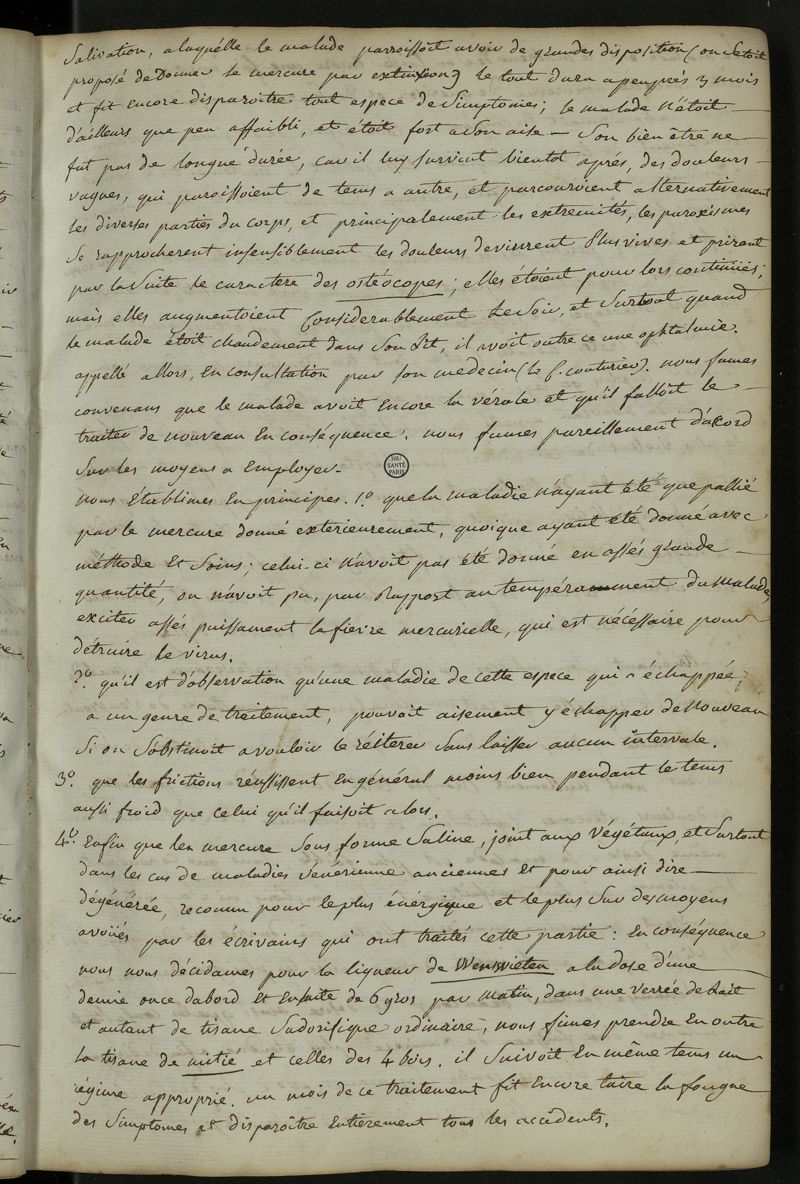 Salivation, a laquélle le malade parroissoit avoir de grandes disposition (on s'etoit
proposé de Donner le mercure par extinxion) le tout dura apeuprés 3 mois
et fit Encore disparoitre tout espece de Simptomes; le malade n'étoit
d'ailleurs que peu affaibli, et étoit fort a Son aise – Son bien être ne
fut pas de longue durée, car il luy survint bientot aprés, des douleurs
vagues, qui paroissoient de tems a autre, et parcouroient alternativement
les diverses parties du corps, et principalement les extremités, les paroxismes
se rapprocherent insensiblement les douleurs devinrent Plus vives et prirent
par la Suite le caractere des ostéocopes; elles étoient pour lors continües;
mais elles augmentoient Considerablement le Soir, et Surtout quand
le malade étoit chaudement dans Son Lit, il avoit outre ce une ophtalmie.
appellé allors, En consultation par son medecin (le C. couturier). nous fumes
convenans que le malade avoit Encore la vérole et qu'il falloit le
traiter de nouveau En conséquence. nous fumes pareillement d'accord
Sur les moyens a Employer.
BIU
SANTÉ
PARIS
nous Etablimes En principes. 1.° que la maladie n'ayant été que pallié
par le mercure donné exterieurement, quoique ayant été donné avec
méthode Et Soins; celui-ci n'avoit pas été donné en assés grande
quantité, ou n'avoit pu, par Rapport au tempérament du malade,
exciter assés puissament la fievre mercurielle, qui est nécéssaire pour
détruire le virus.
2.° qu'il est d'observation qu'une maladie de cette espece qui a échappée
a un genre de traitement, pouvoit aisement y échapper de Nouveau
Si on S'obstinoit a vouloir le réiterer Sans laisser aucun intervale.
3.° que les frictions réussissent En général moins bien pendant le tems
aussi froid que celui qu'il faisoit alors.
4.° Enfin que le mercure Sous forme Saline, joint aux Végétaux, et Surtout
dans les cas de maladies Vénérienne anciennes Et pour ainsi dire
dégénérée, reconnu pour le plus énérgique et le plus Sur des moyens
avoüés par les écrivains qui ont traités cette partie: En conséquence
nous nous décidames pour la liqueur de Wenswieten a la dose d'une
demie once dabord Et Ensuite de 6 gros par matin, dans une verrée de Lait
et autant de tisane Sudorifique ordinaire; nous fimes prendre En outre
la tisane de mitié et celles des 4 bois. il Suivoit En même tems un
régime approprié. un mois de ce traitement fit Encore taire la fougue
des Simptomes et disparoître Entierement tous les accidents.